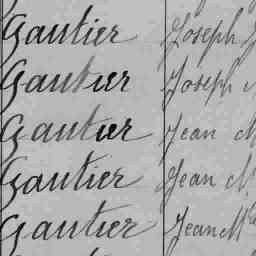 Gautier Joseph
Gautier Joseph
Gautier Jean M
Gautier Jean M
Gautier Jean M